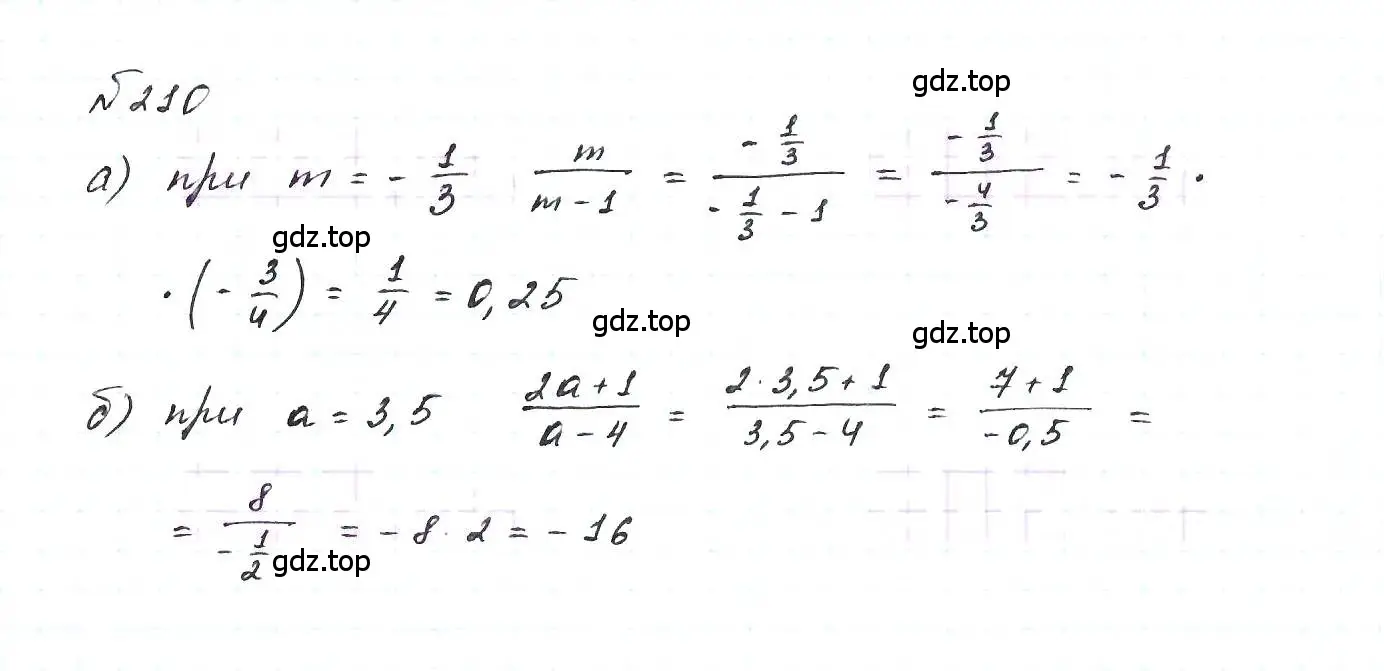 gdz.top
№210
а) при m = - 1/3 m/(m-1) = (- 1/3)/(- 1/3 - 1) = (- 1/3)/(- 4/3) = - 1/3 ·
gdz.top
· (- 3/4) = 1/4 = 0,25
gdz.top
gdz.top
б) при a = 3,5 (2a+1)/(a-4) = (2·3,5+1)/(3,5-4) = (7+1)/(-0,5) =
= 8/(- 1/2) = - 8 · 2 = - 16
gdz.top